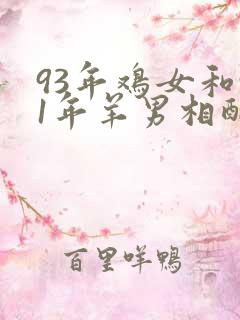 93年鸡女和
1年羊男相配
百里咩鸭